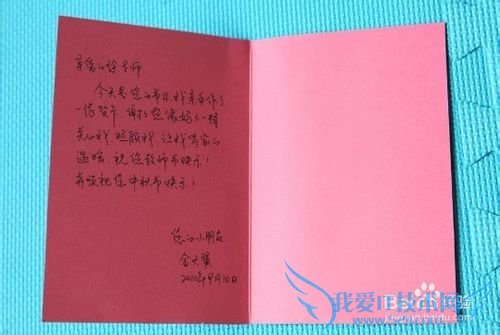 亲爱的徐老师
今天是您的节日,我亲手作了
一张贺卡,谢谢您像妈妈一样
关心我,照顾我,让我有家的
温暖,祝您教师节快乐!
并预祝您中秋节快乐!
您的小朋友
金天
2010年9月10日
Bai 经验
jingyan.baidu.com
我爱IT技术网